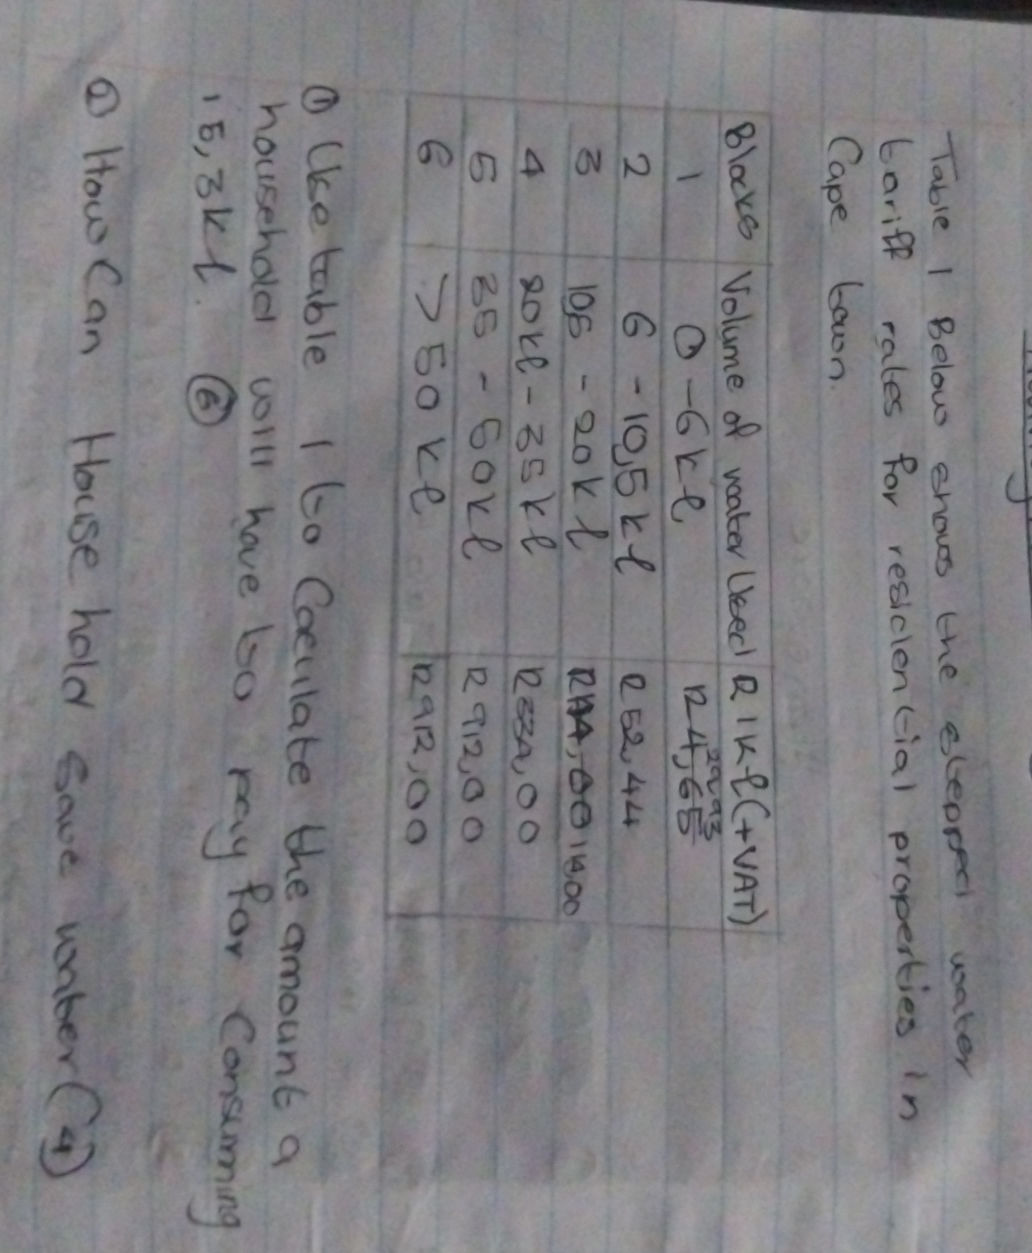 Table 1 Below shows the stepped water
tariff rates for residential properties in
Cape town.
Blocks Volume of water Used R 1kl (+VAT)
1 0 - 6kl R24,65
2 6 - 10,5kl R52,44
3 10,5 - 20kl 114,00
4 20kl - 35kl R334,00
5 35 - 50kl R912,00
6 > 50kl R912,00
① Use table 1 to Caculate the amount a
household will have to pay for Consuming
15,3kl. ⑥
② How Can House hold save water (4)